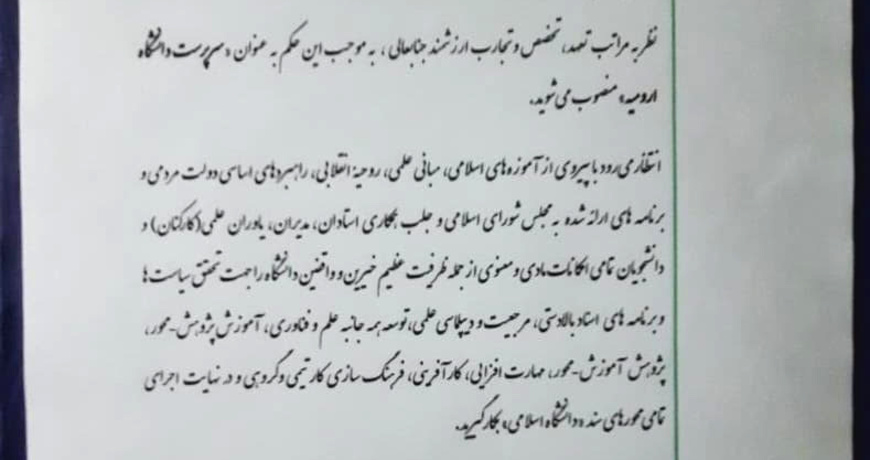 نظر به مراتب تعهد، تخصص و تجارب ارزشمند جنابعالی، به موجب این حکم به عنوان «سرپرست دانشگاه
ارومیه» منصوب می‌شوید.
انتظار می‌رود با پیروی از آموزه‌های اسلامی، مبانی علمی، روحیهٔ انقلابی، راهبردهای اساسی دولت مردمی و
برنامه های ارائه شده به مجلس شورای اسلامی و جلب همکاری استادان، مدیران، یاوران علمی(کارکنان) و
دانشجویان تمامی امکانات مادی و معنوی از جمله ظرفیت عظیم خیرین و واقفین دانشگاه را جهت تحقق سیاست ها
و برنامه های اسناد بالادستی، مرجعیت و دیپلماسی علمی، توسعه همه جانبه علم و فناوری، آموزش پژوهش-محور،
پژوهش آموزش-محور، مهارت افزایی، کارآفرینی، فرهنگ سازی کار تیمی و گروهی و در نهایت اجرای
تمامی محورهای سند «دانشگاه اسلامی» بکار گیرید.